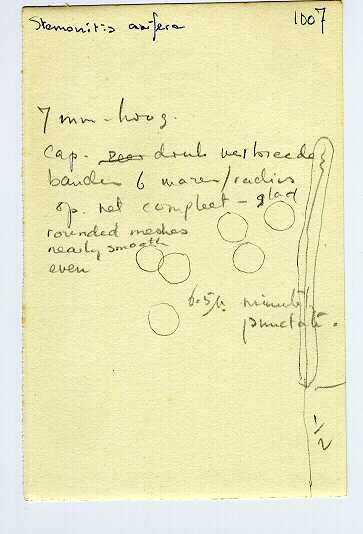 Stemonitis axifera
1007
7 mm - hoog.
Cap. donk verbreede
banden 6 mazen/radius
op. net compleet - glad
rounded meshes
nearly smooth
even
6.5µ minutely
punctate.
1/2